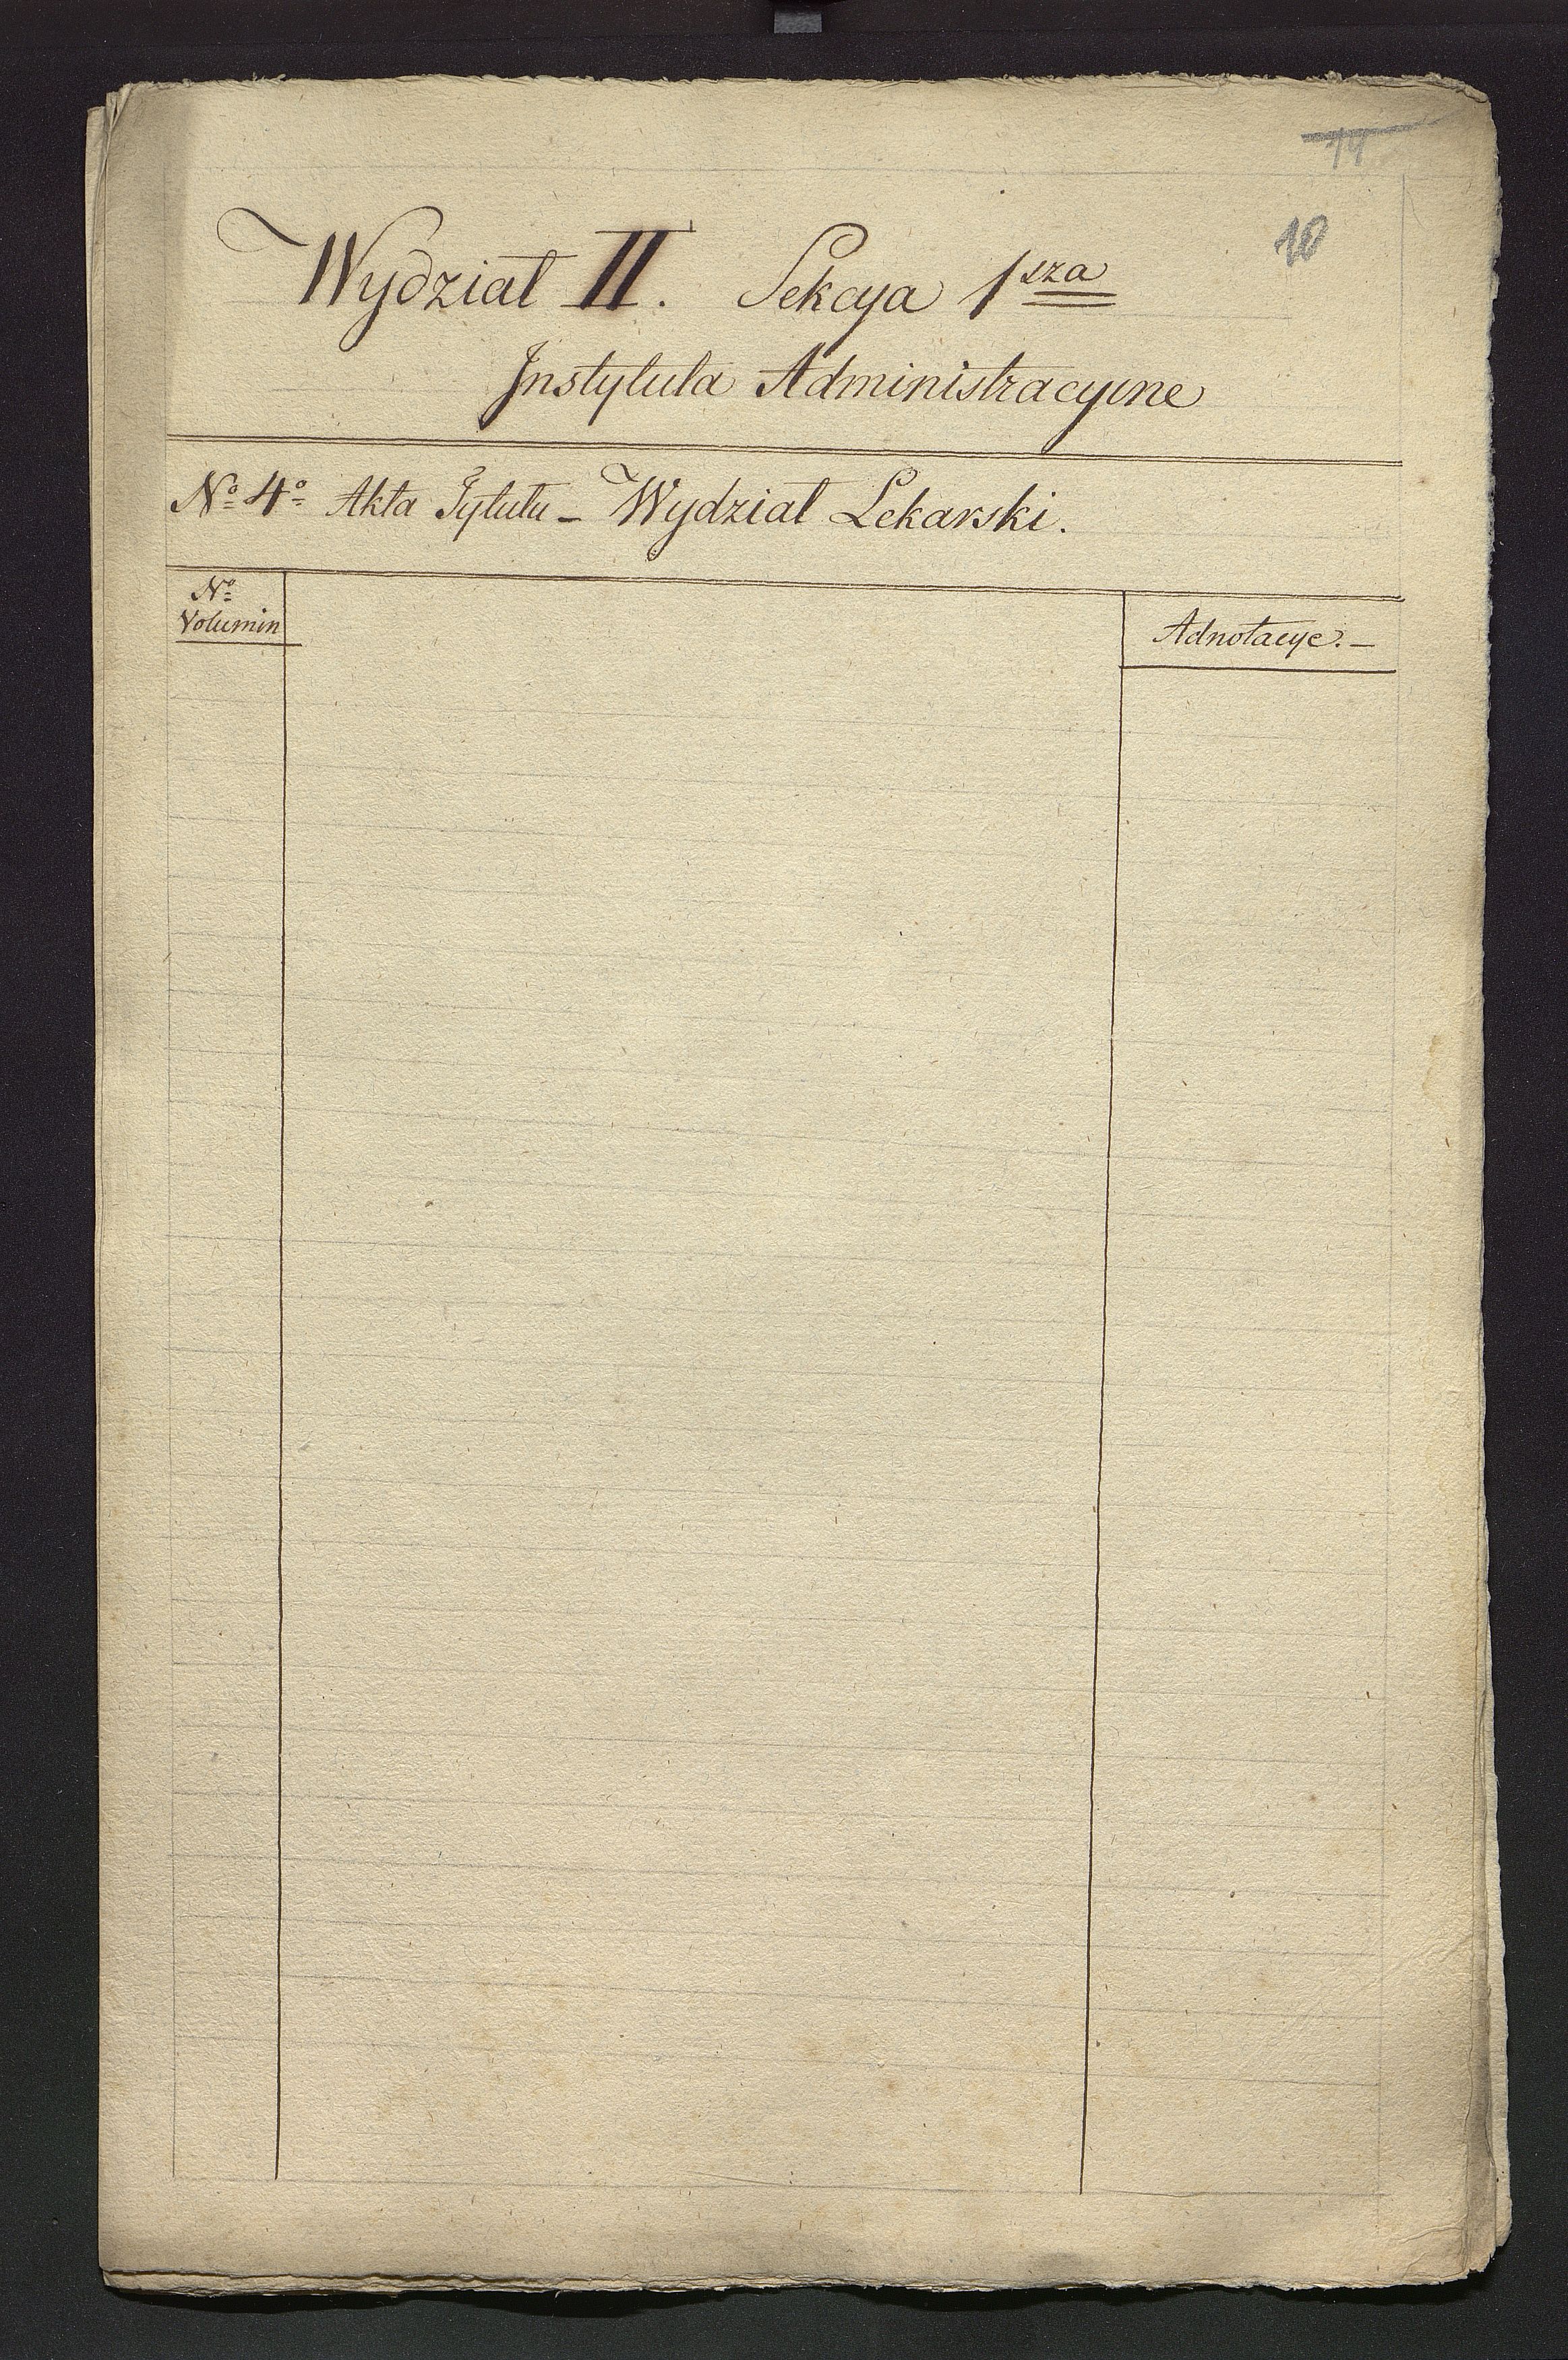 14
10
Wydział II. Sekcya 1sza
Instytuta Administracyine
No 4o Akta Tytułu - Wydział Lekarski.
No
Volumin
Adnotacye. -